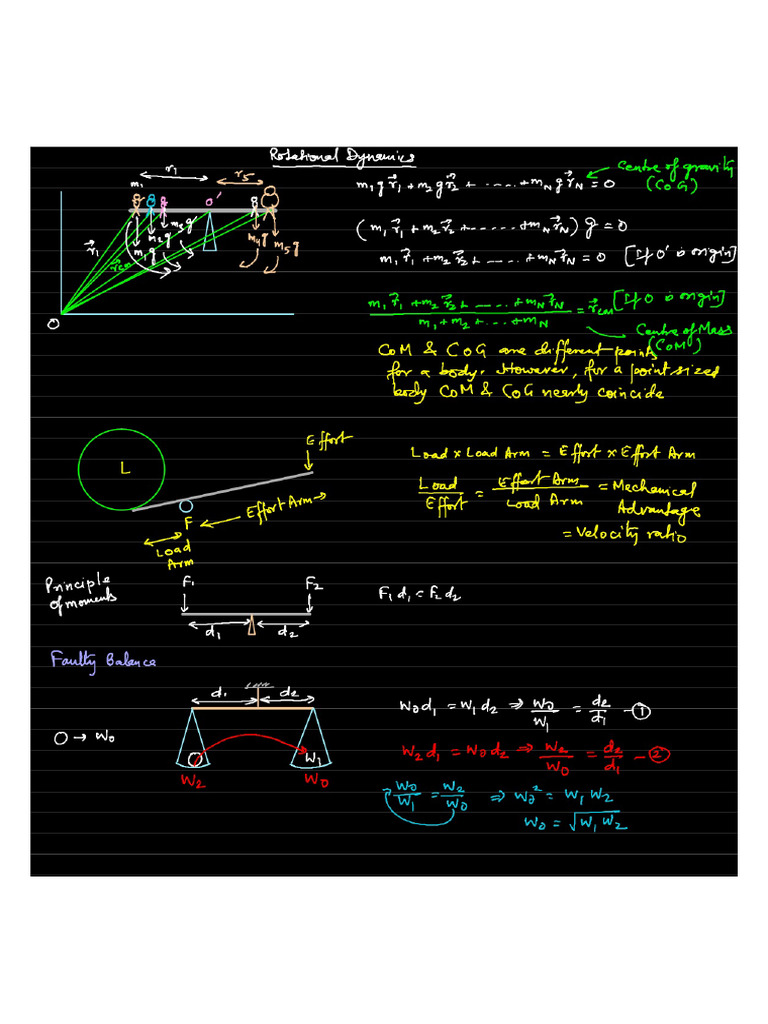 Rotational Dynamics
r₁
r₅
m₁
O'
m₁g
m₂g
m₃g
m₄g
m₅g
r⃗₁
r⃗cm
O
m₁g r⃗₁ + m₂g r⃗₂ + ..... + m_N g r⃗_N = 0
Centre of gravity
(CoG)
(m₁r⃗₁ + m₂r⃗₂ + ...... + m_N r⃗_N) g = 0
m₁r⃗₁ + m₂r⃗₂ + ..... + m_N r⃗_N = 0 [If O' is origin]
(m₁r⃗₁ + m₂r⃗₂ + ..... + m_N r⃗_N) / (m₁ + m₂ + ... + m_N) = r⃗cm [If O is origin]
Centre of Mass
(CoM)
CoM & CoG are different points
for a body. However, for a point sized
body CoM & CoG nearly coincide
L
Effort
F
Effort Arm
Load
Arm
Load x Load Arm = Effort x Effort Arm
Load / Effort = Effort Arm / Load Arm = Mechanical
Advantage
= Velocity ratio
Principle
of moments
F₁
F₂
d₁
d₂
F₁d₁ = F₂d₂
Faulty Balance
d₁
d₂
O → W₀
W₁
W₂
W₀
W₀d₁ = W₁d₂ ⇒ W₀/W₁ = d₂/d₁ - ①
W₂d₁ = W₀d₂ ⇒ W₂/W₀ = d₂/d₁ - ②
W₀/W₁ = W₂/W₀ ⇒ W₀² = W₁W₂
W₀ = √W₁W₂